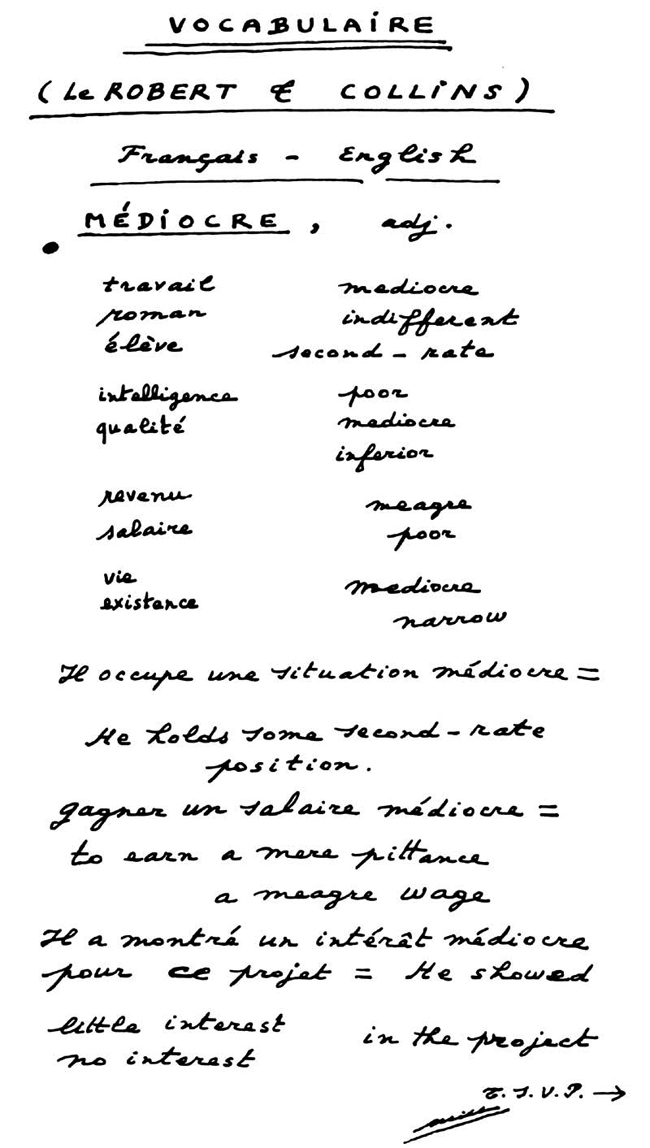 VOCABULAIRE
(Le ROBERT & COLLINS)
Français - English
MÉDIOCRE, adj.
travail mediocre
roman indifferent
élève second-rate
intelligence poor
qualité mediocre
inferior
revenu meagre
salaire poor
vie mediocre
existence narrow
Il occupe une situation médiocre =
He holds some second-rate
position.
gagner un salaire médiocre =
to earn a mere pittance
a meagre wage
Il a montré un intérêt médiocre
pour ce projet = He showed
little interest in the project
no interest
T.S.V.P. →